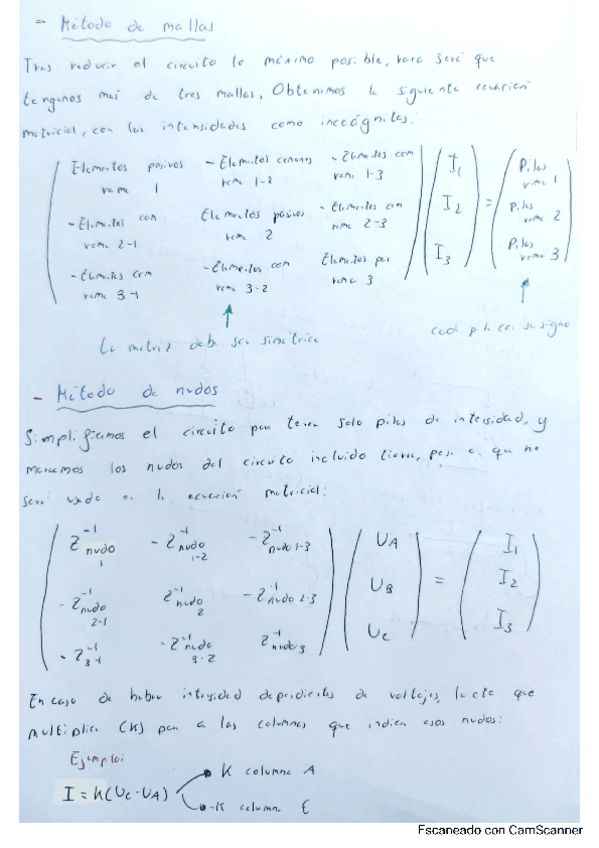 - Método de mallas
Tras reducir el circuito lo máximo posible, raro será que
tengamos más de tres mallas, Obtenemos la siguiente ecuación
matricial, con las intensidades como incógnitas:
Elementos pasivos rama 1 - Elementos comunes rama 1-2 - Elementos com rama 1-3 I1 Pilas rama 1
- Elementos con rama 2-1 Elementos pasivos rama 2 - Elementos con rama 2-3 I2 = Pilas rama 2
- Elementos com rama 3-1 - Elementos con rama 3-2 Elementos pas rama 3 I3 Pilas rama 3
La matriz debe ser simétrica
cada pila con su signo
- Método de nudos
Simplificamos el circuito para tener solo pilas de intensidad, y
marcamos los nudos del circuito incluido tierra, pese a que no
será usado en la ecuación matricial:
Z⁻¹ nudo 1 - Z⁻¹ nudo 1-2 - Z⁻¹ nudo 1-3 UA I1
- Z⁻¹ nudo 2-1 Z⁻¹ nudo 2 - Z⁻¹ nudo 2-3 UB = I2
- Z⁻¹ 3-1 - Z⁻¹ nudo 3-2 Z⁻¹ nudo 3 UC I3
En caso de haber intensidad dependientes de voltajes, la cte que
multiplica (K) pasa a las columnas que indican esos nudos:
Ejemplo:
I = K(UC - UA) K columna A
-K columna C
Escaneado con CamScanner